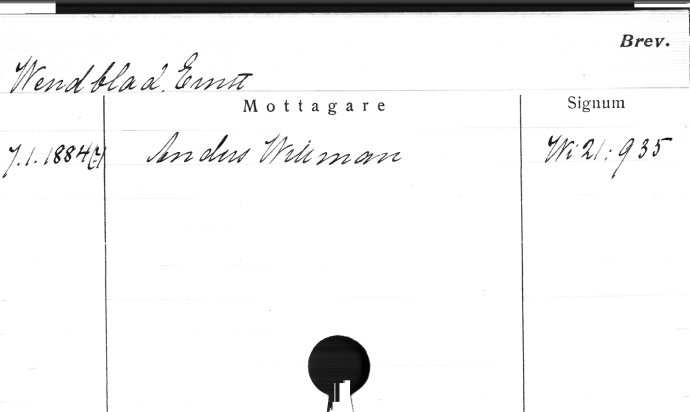 Brev.
Wendblad, Ernst
Mottagare
Signum
7.1.1884(?) Anders Williman Wi 21:935